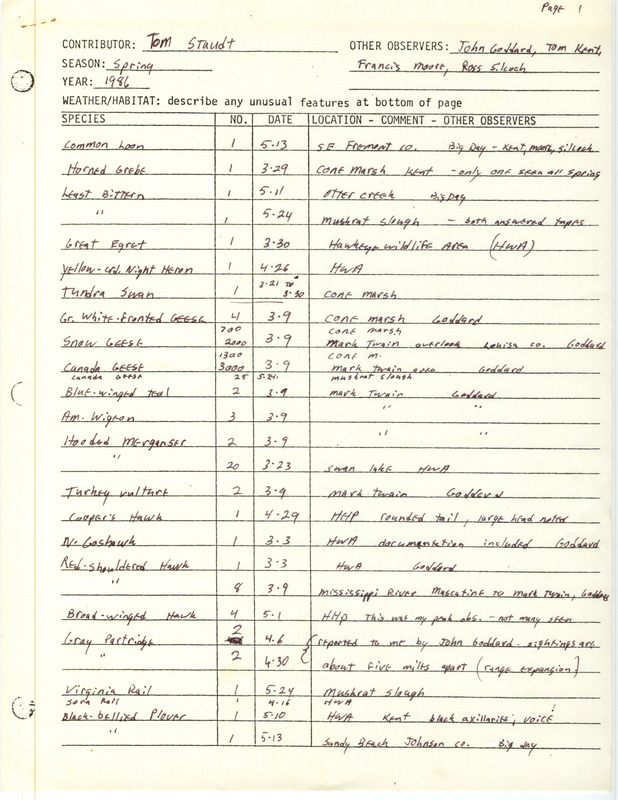 Page 1
CONTRIBUTOR: Tom Staudt
OTHER OBSERVERS: John Goddard, Tom Kent,
SEASON: Spring
Francis Moore, Ross Silcock
YEAR: 1986
WEATHER/HABITAT: describe any unusual features at bottom of page
SPECIES NO. DATE LOCATION - COMMENT - OTHER OBSERVERS
Common Loon 1 5-13 S.E Fremont Co. Big Day - Kent, Moore, Silcock
Horned Grebe 1 3-29 Cone Marsh Kent - only one seen all Spring
Least Bittern 1 5-11 Otter Creek Big Day
" 1 5-24 Muskrat Slough - both answered tapes
Great Egret 1 3-30 Hawkeye Wildlife Area (HWA)
Yellow-crd. Night Heron 1 4-26 HWA
Tundra Swan 1 3-21 to 3-30 Cone Marsh
Gr. White-Fronted Geese 4 3-9 Cone Marsh Goddard
700 Cone Marsh
Snow Geese 2000 3-9 Mark Twain overlook Louisa Co. Goddard
1300 Cone M.
Canada Geese 3000 3-9 Mark Twain area Goddard
Canada Geese 25 5-24 Muskrat Slough
Blue-winged Teal 2 3-9 Mark Twain Goddard
Am. Wigeon 3 3-9 " "
Hooded Merganser 2 3-9 " "
" 20 3-23 Swan Lake HWA
Turkey Vulture 2 3-9 Mark Twain Goddard
Cooper's Hawk 1 4-29 HHP rounded tail, large head noted
N. Goshawk 1 3-3 HWA documentation included Goddard
Red-shouldered Hawk 1 3-3 HWA Goddard
" 8 3-9 Mississippi River Muscatine to Mark Twain, Goddard
Broad-winged Hawk 4 5-1 HHP This was my peak obs. - not many seen
Gray Partridge 2 4-6 reported to me by John Goddard. sightings are
" 2 4-30 about five miles apart (range expansion)
Virginia Rail 1 5-24 Muskrat Slough
Sora Rail 1 4-16 HWA
Black-bellied Plover 1 5-10 HWA Kent black axillaries, voice
" 1 5-13 Sandy Beach Johnson Co. Big Day